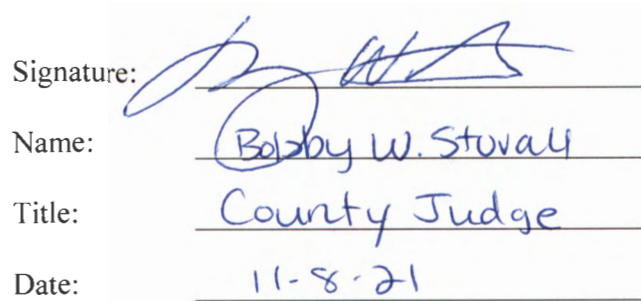 Signature:
Name: Bobby W. Stovall
Title: County Judge
Date: 11-8-21